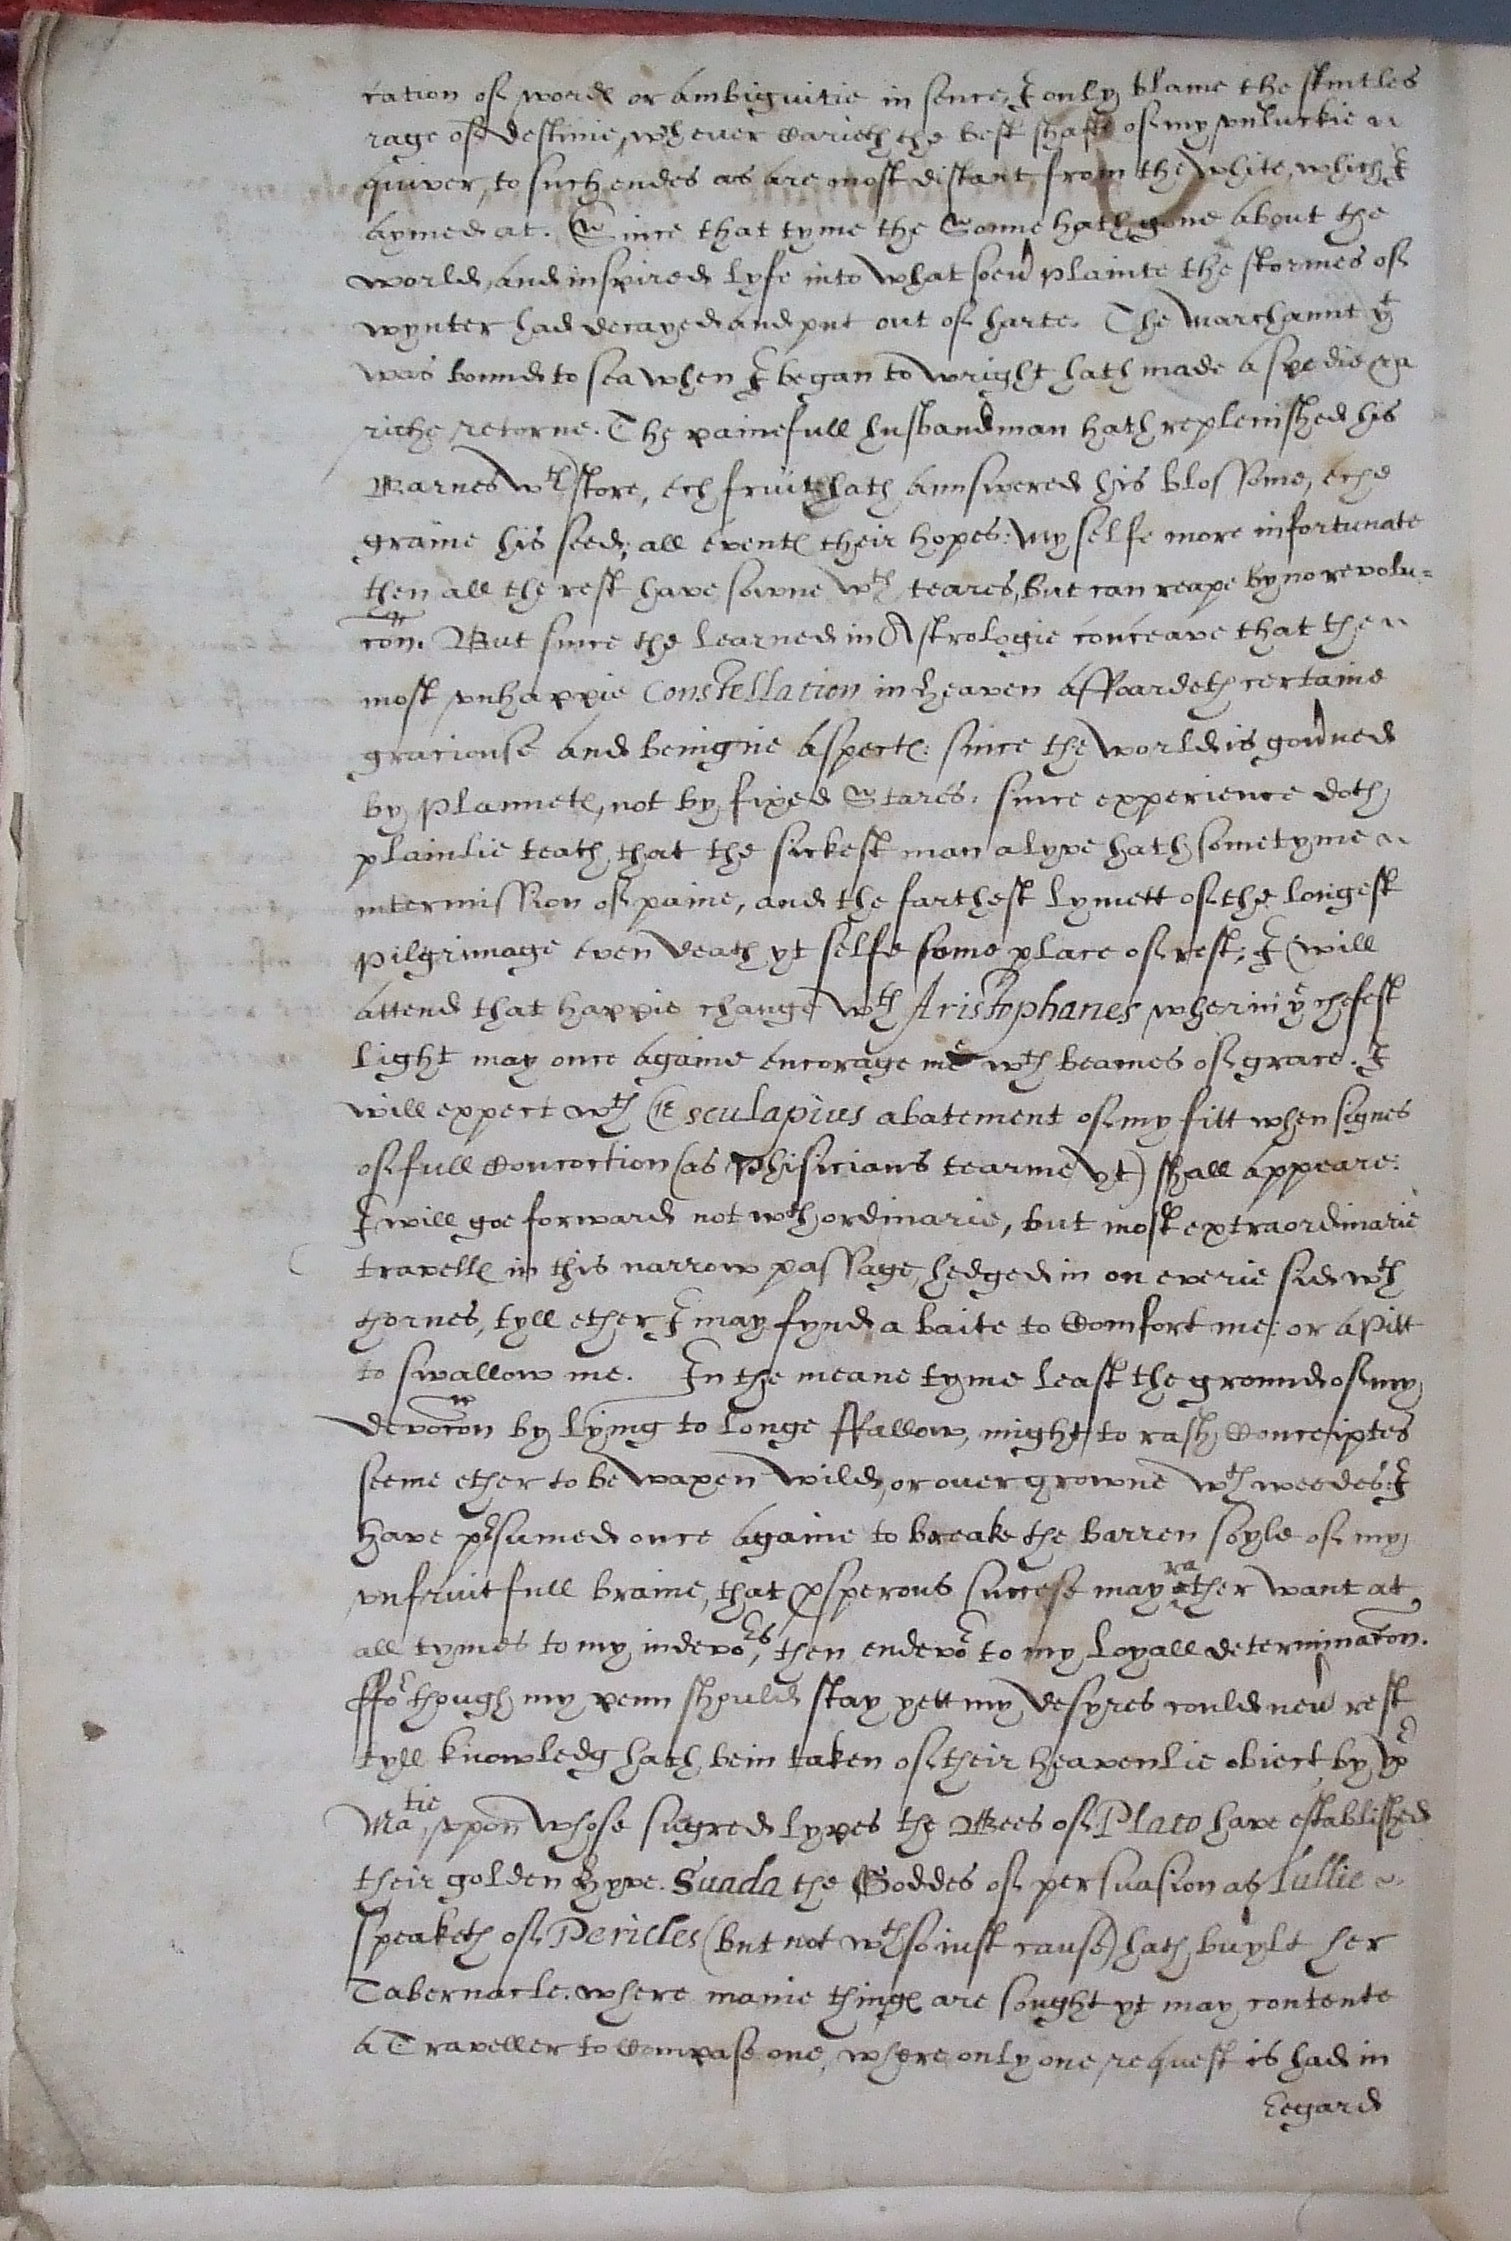 cation of wordes or ambiguitie in sence, I only blame the
rage of destinie, wch ever carieth the best shafte of my vnluckie
quiver, to such endes as are most distant from the white, which I
aymed at. Since that tyme the Sonne hath gone about the
world, and inspired lyfe into what soeuer plainte the stormes of
wynter had decayed and put out of harte. The Marchaunt yt
was bound to sea when I began to wright hath made a spedie & a
riche retorne. The painefull husbandman hath replenished his
Barnes wth store, ech fruite hath aunswered his blossome, eche
graine his seed, all eventes their hopes: My selfe more infortunate
then all the rest have sowne wth teares, but can reape by no revolu=
con. But since the learned in Astrologie conceave that the
most vnhappie Constellacion in heaven affoardeth certaine
graciouse and benigne aspectes: since the world is gouerned
by Plannetes, not by fixed Stares: since experience doth
plainlie teach that the sickest man alyve hath sometyme
intermission of paine, and the farthest lymett of the longest
pilgrimage even death yt selfe some place of rest; I will
attend that happie change wth Aristophanes wherin ye chefest
light may once againe encorage me wth beames of grace. I
will expect wth Æsculapius abatement of my fitt when signes
of full concoction (as Phisicians tearme yt) shall appeare:
I will goe forward not wth ordinarie, but most extraordinarie
travelles in this narrow passage, hedged in on everie side wth
thornes, tyll ether I may fynd a baite to comfort me: or a pitt
to swallow me. In the meane tyme least the ground of my
devocon by lying to longe ffallow, might to rash conceiptes
seeme ether to be waxen wild, or over growne wth weedes: I
have presumed once againe to breake the barren soyle of my
vnfruitfull braine, that prosperous successe may rather want at
all tymes to my indevors, then endevor to my loyall determinacon.
ffor though my penn should stay yett my desyres could neuer rest
tyll knowledg hath bein taken of their heavenlie obiect by yor
Matie, vpon whose sugred lyppes the Bees of Plato have established
their golden hyve. Suada the Goddes of perswasion as Tullie
speaketh of Pericles (but not wth so iust cause) hath buylt her
Tabernacle. where manie thinges are sought yt may contente
a Traveller to compasse one, where only one request is had in
Regard